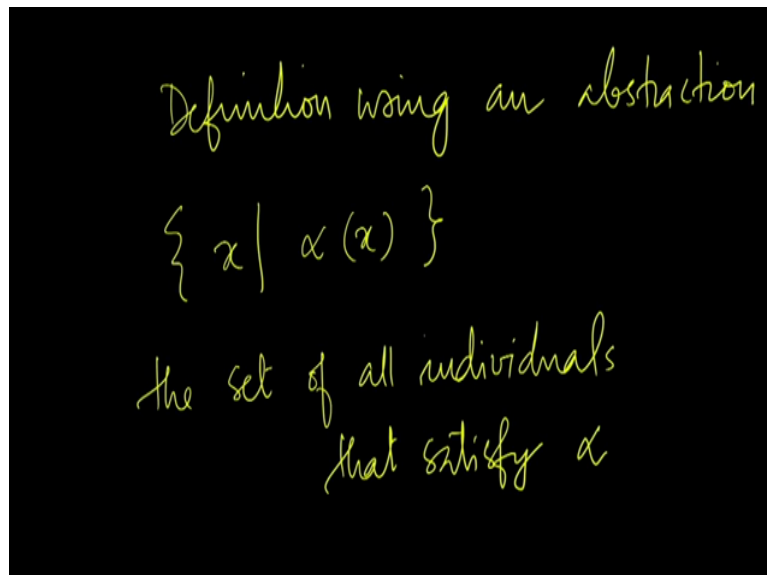 Definition using an abstraction
{ x | α(x) }
the set of all individuals
that satisfy α